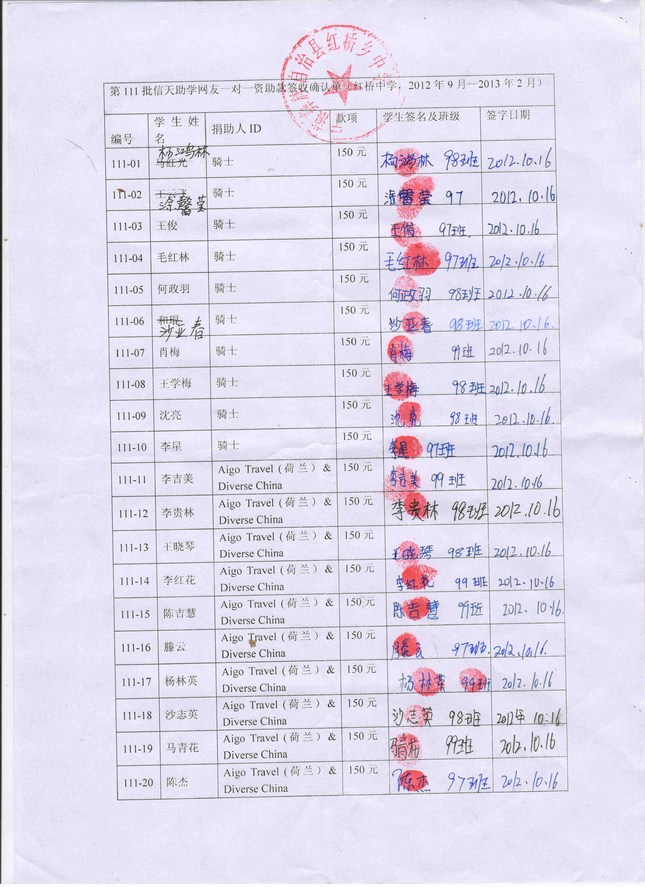 自治县红桥乡中
第 111 批信天助学网友一对一资助款签收确认单（红桥中学，2012 年 9 月—2013 年 2 月）
编号 学生姓名 捐助人 ID 款项 学生签名及班级 签字日期
杨鸿林
111-01 马红光 骑士 150 元 杨鸿林 98班 2012.10.16
111-02 骑士 150 元 涂馨莹 97 2012.10.16
涂馨莹
111-03 王俊 骑士 150 元 王俊 97班 2012.10.16
111-04 毛红林 骑士 150 元 毛红林 97班 2012.10.16
111-05 何政羽 骑士 150 元 何政羽 98班 2012.10.16
111-06 骑士 150 元 沙亚春 98班 2012.10.16.
沙亚春
111-07 肖梅 骑士 150 元 肖梅 99班 2012.10.16
111-08 王学梅 骑士 150 元 王学梅 98班 2012.10.16
111-09 沈亮 骑士 150 元 沈亮 98班 2012.10.16.
111-10 李星 骑士 150 元 李星 97班 2012.10.16
111-11 李吉美 Aigo Travel (荷兰) & Diverse China 150 元 李吉美 99班 2012.10.16
111-12 李贵林 Aigo Travel (荷兰) & Diverse China 150 元 李贵林 98班 2012.10.16
111-13 王晓琴 Aigo Travel (荷兰) & Diverse China 150 元 王晓琴 98班 2012.10.16
111-14 李红花 Aigo Travel (荷兰) & Diverse China 150 元 李红花 99班 2012.10.16
111-15 陈吉慧 Aigo Travel (荷兰) & Diverse China 150 元 陈吉慧 99班 2012.10.16.
111-16 滕云 Aigo Travel (荷兰) & Diverse China 150 元 滕云 97班 2012.10.16.
111-17 杨林英 Aigo Travel (荷兰) & Diverse China 150 元 杨林英 99班 2012.10.16
111-18 沙志英 Aigo Travel (荷兰) & Diverse China 150 元 沙志英 98班 2012年 10.16
111-19 马青花 Aigo Travel (荷兰) & Diverse China 150 元 马青花 99班 2012.10.16
111-20 陈杰 Aigo Travel (荷兰) & Diverse China 150 元 陈杰 97班 2012.10.16